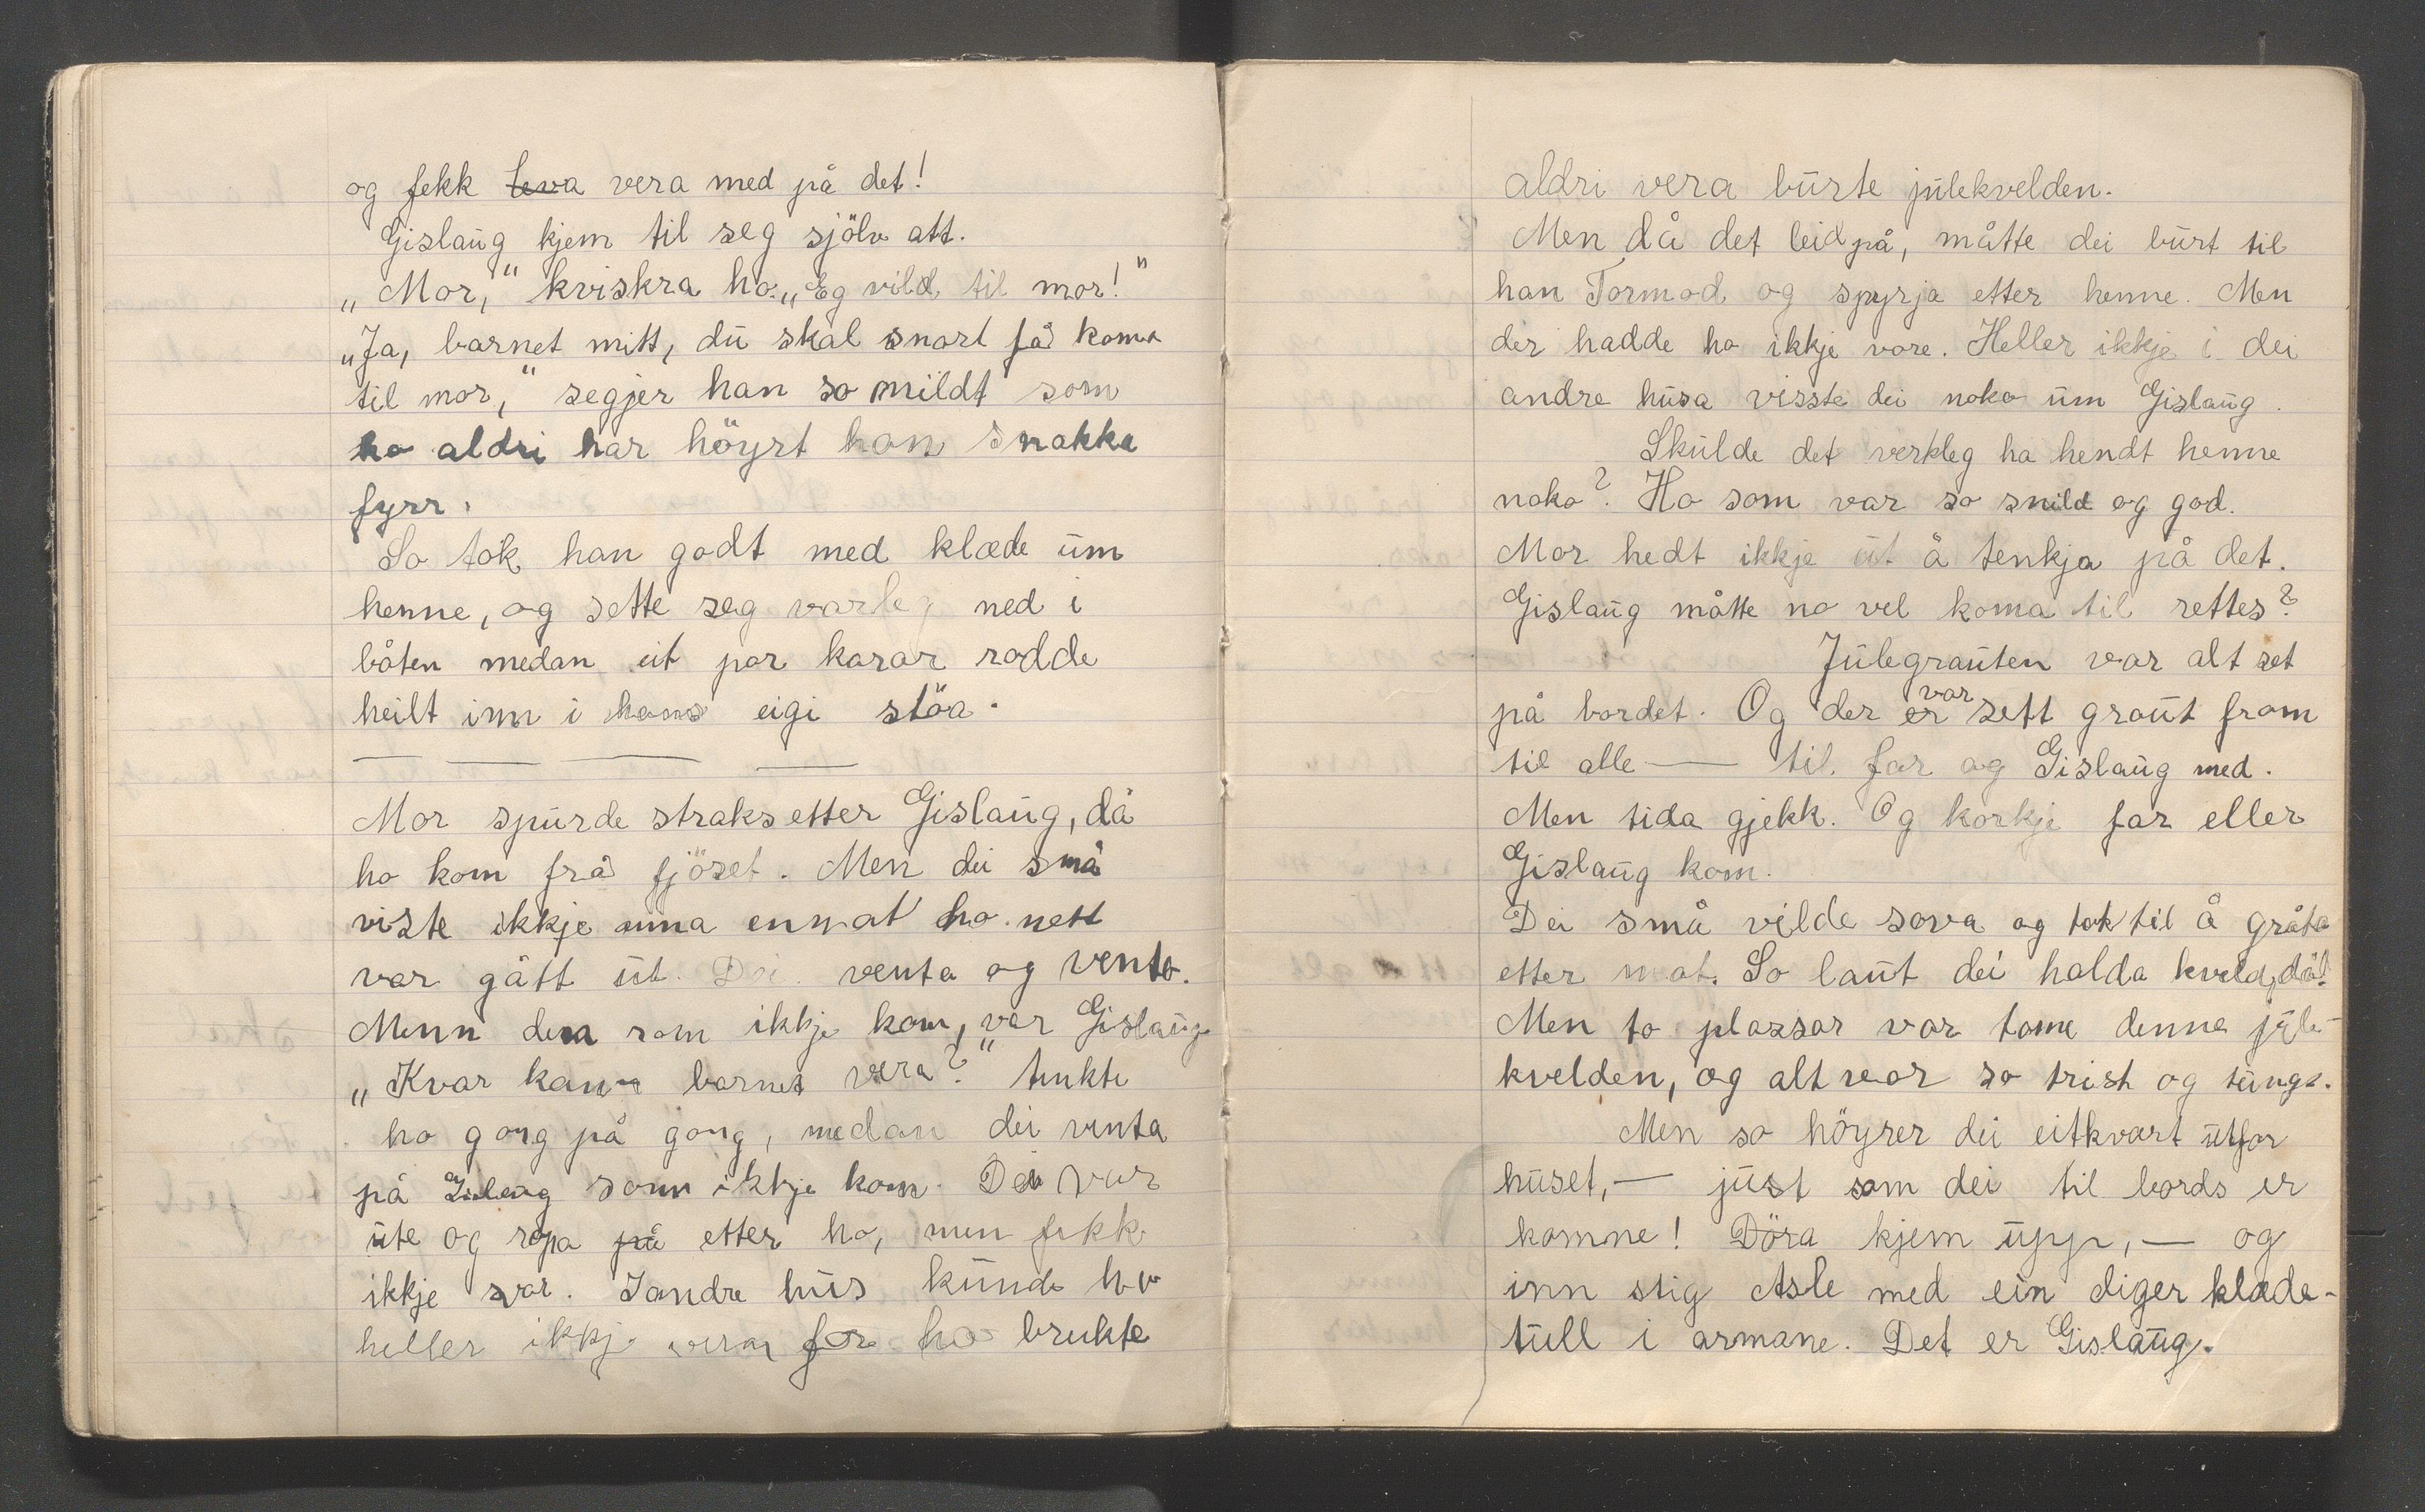 og fekk leva vera med på det!
Gislaug kjem til seg sjölv att.
„Mor,“ kviskra ho. „Eg vild til mor!“
„Ja, barnet mitt, du skal snart få koma
til mor,“ segjer han so mildt som
ho aldri har höyrt han snakke
fyrr.
So tok han godt med klæde um
henne, og sette seg varleg ned i
båten medan eit par karar rodde
heilt inn i hans eigi stöa.
— — — —
Mor spurde straks etter Gislaug, då
ho kom frå fjöset. Men dei små
viste ikkje anna ennat ho nett
var gått ut. Dei venta og venta.
Menn den som ikkje kom, var Gislaug
„Kvar kann barnet vera?“ tenkte
ho gong på gong, medan dei venta
på Gislaug som ikkje kom. Dei var
ute og ropa på etter ho, men fekk
ikkje svar. I andre hus kunde ho
heller ikkje vera for ho brukte
aldri vera burte julekvelden.
Men då det leid på, måtte dei burt til
han Tormod og spyrja etter henne. Men
der hadde ho ikkje vore. Heller ikkje i dei
andre husa visste dei noko um Gislaug.
Skulde det verkleg ha hendt henne
noko? Ho som var so snild og god.
Mor hedt ikkje ut å tenkja på det.
Gislaug måtte no vel koma til rettes?
Julegrauten var alt set
på bordet. Og der er var sett graut fram
til alle — til far og Gislaug med.
Men tida gjekk. Og korkje far eller
Gislaug kom.
Dei små vilde sova og tok til å gråta
etter mat. So laut dei halda kveld, då!
Men to plassar var tome denne jule-
kvelden, og alt var so trist og tungt.
Men so höyrer dei eitkvart utfor
huset, — just som dei til bords er
komne! Döra kjem upp, — og
inn stig Asle med ein diger klæde-
tull i armane. Det er Gislaug.